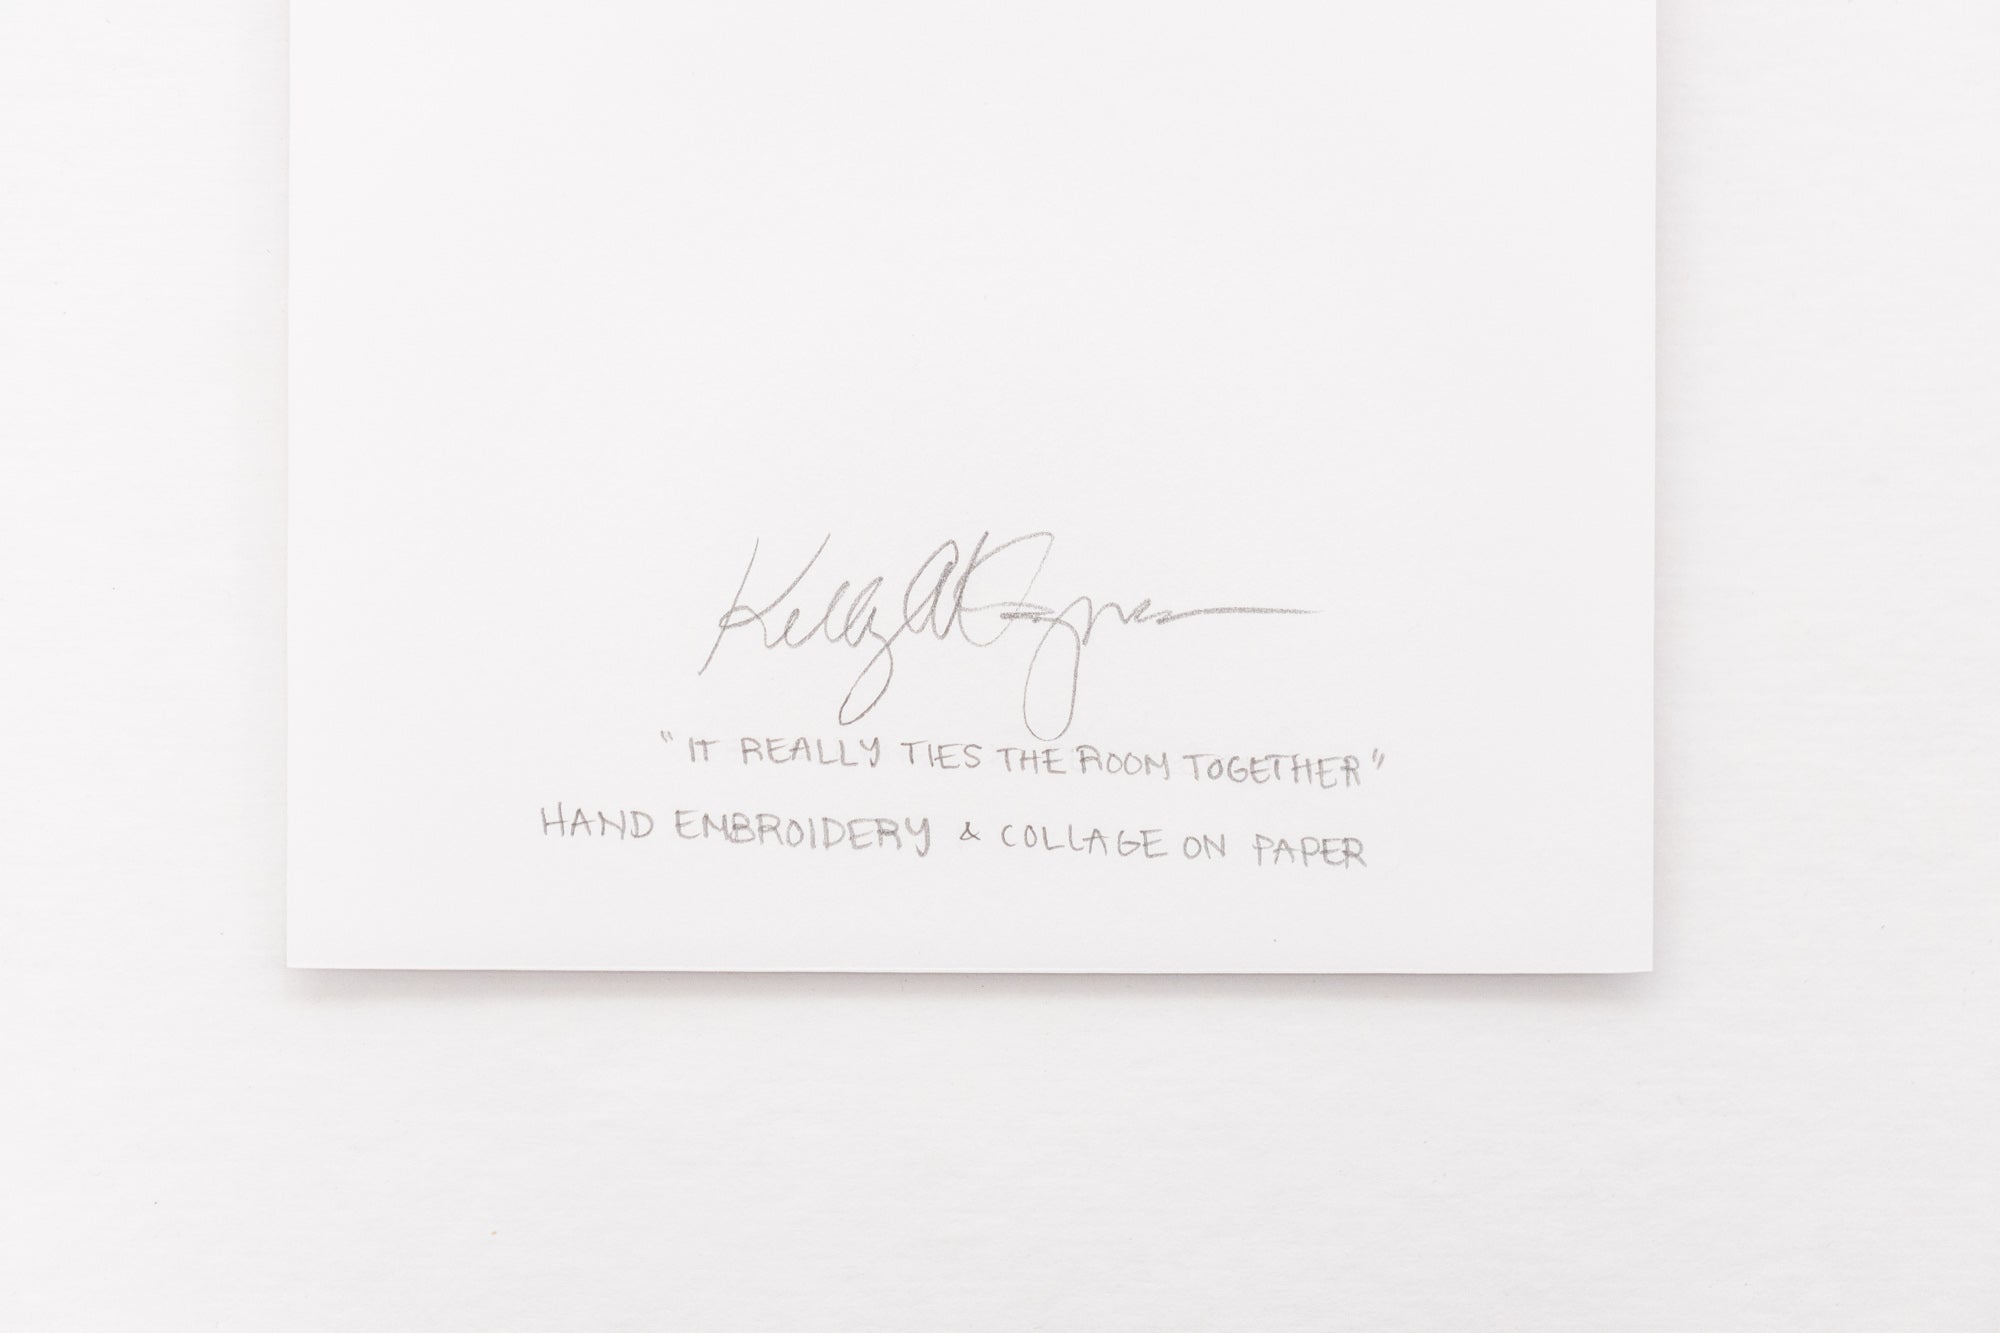 Kelly
"IT REALLY TIES THE ROOM TOGETHER"
HAND EMBROIDERY & COLLAGE ON PAPER